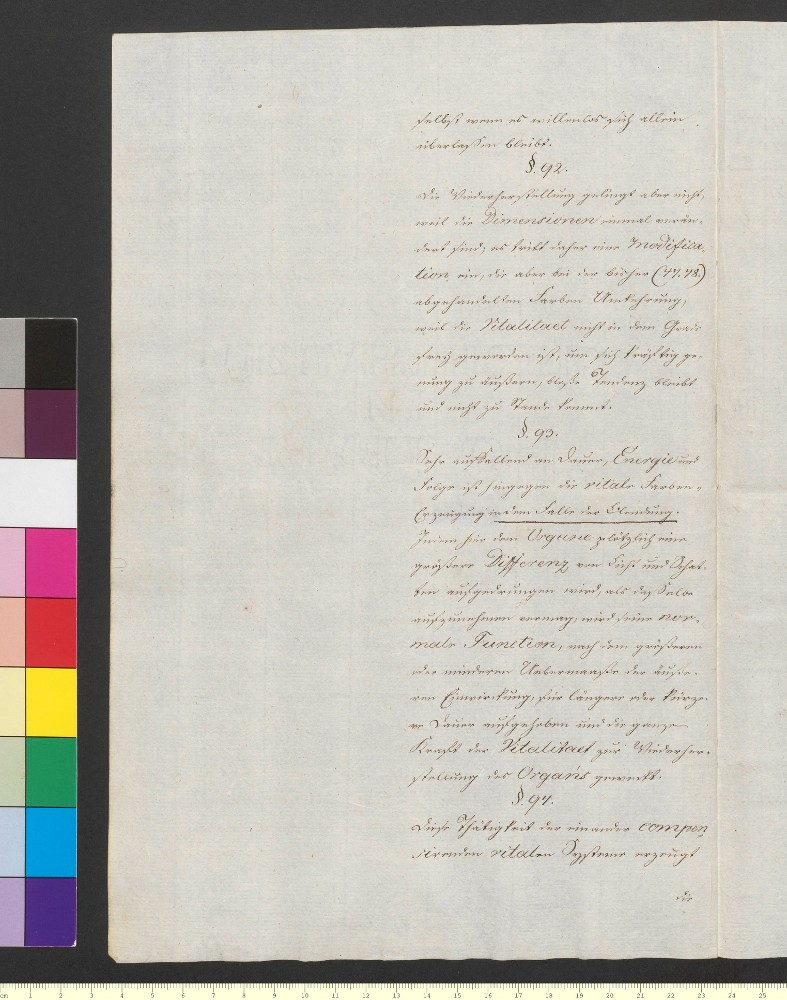 selbst wenn es willenlos sich allein
überlassen bleibt.
§. 92.
Die Wiederherstellung gelingt aber nicht,
weil die Dimensionen einmal verän-
dert sind; es tritt daher eine Modifica-
tion ein, die aber bei der bisher (47. 48.)
abgehandelten Farben Umkehrung,
weil die Vitalitaet nicht in dem Grade
frey geworden ist, um sich kräftig ge-
nung zu äußern, bloße Tendenz bleibt
und nicht zu Stande kommt.
§. 93.
Sehr auffallend an Dauer, Energie und
Folge ist hingegen die vitale Farben-
Erzeugung in dem Falle der Blendung.
Indem hier dem Organe plötzlich eine
größere Differenz von Licht und Schat-
ten aufgedrungen wird, als dasselbe
aufzunehmen vermag, wird seine nor-
male Function, nach dem größeren
oder minderen Uebermaaße der äuße-
ren Einwirckung, für längere oder kürze-
re Dauer aufgehoben und die ganze
Kraft der Vitalitaet zur Wiederher-
stellung des Organs geweckt.
§. 94.
Diese Thätigkeit der einander compen
sirenden vitalen Systeme erzeugt
die